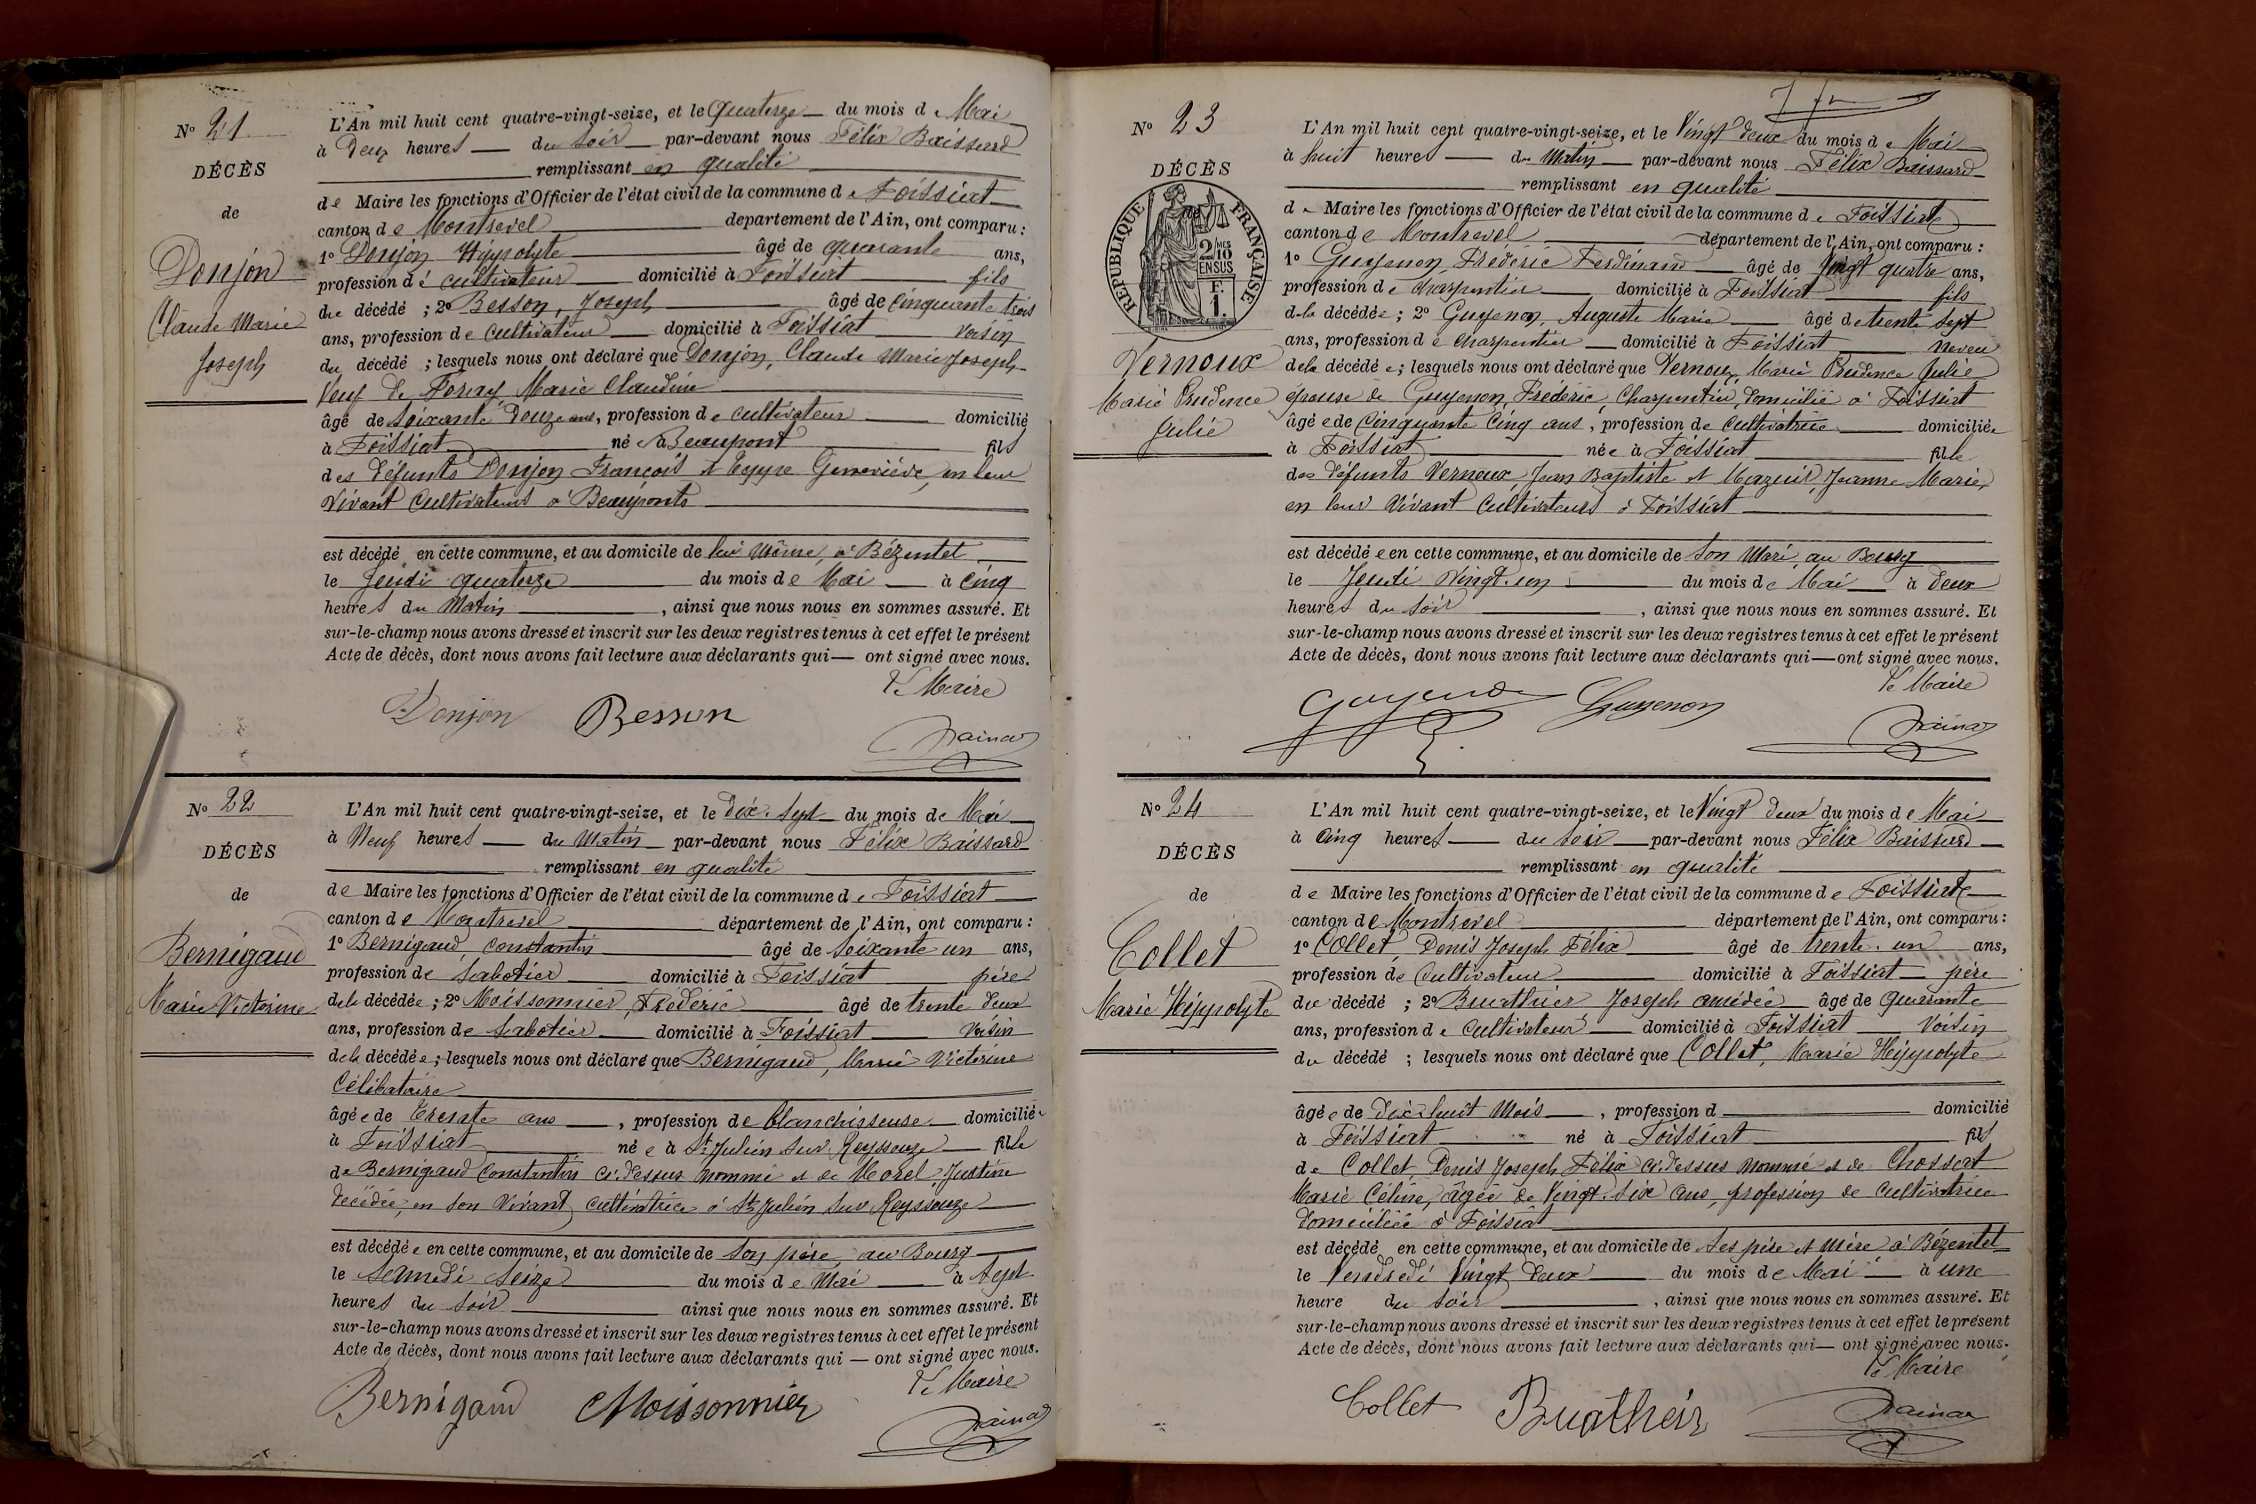 N° 21
DÉCÈS
de
Donjon
Claude Marie
Joseph
L'An mil huit cent quatre-vingt-seize, et le Quatorze du mois de Mai
à Deux heures du soir par-devant nous Félix Baissard
remplissant en qualité
de Maire les fonctions d'Officier de l'état civil de la commune de Foissiat
canton de Montrevel département de l'Ain, ont comparu :
1° Donjon Hyppolyte âgé de quarante ans,
profession de cultivateur domicilié à Foissiat fils
du décédé ; 2° Besson, Joseph âgé de Cinquante trois
ans, profession de Cultivateur domicilié à Foissiat voisin
du décédé ; lesquels nous ont déclaré que Donjon, Claude Marie Joseph
Veuf de Foray, Marie Claudine
âgé de soixante Douze ans, profession de cultivateur domicilié
à Foissiat né à Beaupont fils
des défunts Donjon François et Teppe Geneviève, en leur
vivant Cultivateurs à Beauponts
est décédé en cette commune, et au domicile de lui même, à Bézentet
le Jeudi quatorze du mois de Mai à Cinq
heures du Matin , ainsi que nous nous en sommes assuré. Et
sur-le-champ nous avons dressé et inscrit sur les deux registres tenus à cet effet le présent
Acte de décès, dont nous avons fait lecture aux déclarants qui — ont signé avec nous.
Le Maire
Donjon Besson
N° 22
DÉCÈS
de
Bernigaud
Marie Victorine
L'An mil huit cent quatre-vingt-seize, et le Dix-Sept du mois de Mai
à Neuf heures du Matin par-devant nous Félix Baissard
remplissant en qualité
de Maire les fonctions d'Officier de l'état civil de la commune de Foissiat
canton de Montrevel département de l'Ain, ont comparu :
1° Bernigaud, Constantin âgé de Soixante un ans,
profession de Sabotier domicilié à Foissiat père
de la décédée ; 2° Moissonnier, Fréderic âgé de trente deux
ans, profession de Sabotier domicilié à Foissiat Voisin
de la décédée ; lesquels nous ont déclaré que Bernigaud, Marie Victorine
Célibataire
âgée de Trente ans , profession de blanchisseuse domiciliée
à Foissiat née à St Julien sur Reyssouze fille
de Bernigaud Constantin ci-dessus nommé et de Morel, Justine
décédée, en son Vivant, cultivatrice à St Julien sur Reyssouze
est décédée en cette commune, et au domicile de son père, au Bourg
le Samedi Seize du mois de Mai à Sept
heures du soir ainsi que nous nous en sommes assuré. Et
sur-le-champ nous avons dressé et inscrit sur les deux registres tenus à cet effet le présent
Acte de décès, dont nous avons fait lecture aux déclarants qui — ont signé avec nous.
Le Maire
Bernigaud Moissonnier
N° 23
DÉCÈS
RÉPUBLIQUE FRANÇAISE
2 MES
10
EN SUS
F.
1.
Vernoux
Marie Prudence
Julie
L'An mil huit cent quatre-vingt-seize, et le Vingt deux du mois de Mai
à huit heures du Matin par-devant nous Félix Baissard
remplissant en qualité
de Maire les fonctions d'Officier de l'état civil de la commune de Foissiat
canton de Montrevel département de l'Ain, ont comparu :
1° Guyenon, Fréderic Ferdinand âgé de Vingt quatre ans,
profession de charpentier domicilié à Foissiat fils
de la décédée ; 2° Guyenon, Auguste Marie âgé de trente sept
ans, profession de charpentier domicilié à Foissiat neveu
de la décédée ; lesquels nous ont déclaré que Vernoux, Marie Prudence Julie
épouse de Guyenon, Fréderic, Charpentier, domicilié à Foissiat
âgée de Cinquante Cinq ans, profession de Cultivatrice domiciliée
à Foissiat née à Foissiat fille
des défunts Vernoux, Jean Baptiste et Mazuir, Jeanne Marie,
en leur Vivant Cultivateurs à Foissiat
est décédée en cette commune, et au domicile de son Mari, au Bourg
le Jeudi Vingt-un du mois de Mai à deux
heures du soir , ainsi que nous nous en sommes assuré. Et
sur-le-champ nous avons dressé et inscrit sur les deux registres tenus à cet effet le présent
Acte de décès, dont nous avons fait lecture aux déclarants qui — ont signé avec nous.
Le Maire
Guyenon Guyenon
N° 24
DÉCÈS
de
Collet
Marie Hippolyte
L'An mil huit cent quatre-vingt-seize, et le Vingt deux du mois de Mai
à Cinq heures du soir par-devant nous Félix Baissard
remplissant en qualité
de Maire les fonctions d'Officier de l'état civil de la commune de Foissiat
canton de Montrevel département de l'Ain, ont comparu :
1° Collet, Denis Joseph Félix âgé de trente-un ans,
profession de Cultivateur domicilié à Foissiat père
du décédé ; 2° Buathier Joseph Amédée âgé de quarante
ans, profession de Cultivateur domicilié à Foissiat Voisin
du décédé ; lesquels nous ont déclaré que Collet, Marie Hippolyte
âgé de dix-huit Mois , profession d domicilié
à Foissiat né à Foissiat fils
de Collet, Denis Joseph Félix ci-dessus nommé et de Chossat
Marie Céline, âgée de Vingt-Six ans, profession de Cultivatrice
domiciliée à Foissiat
est décédé en cette commune, et au domicile de ses père et Mère à Bézentet
le Vendredi Vingt deux du mois de Mai à une
heure du soir , ainsi que nous nous en sommes assuré. Et
sur-le-champ nous avons dressé et inscrit sur les deux registres tenus à cet effet le présent
Acte de décès, dont nous avons fait lecture aux déclarants qui — ont signé avec nous.
Le Maire
Collet Buatheir